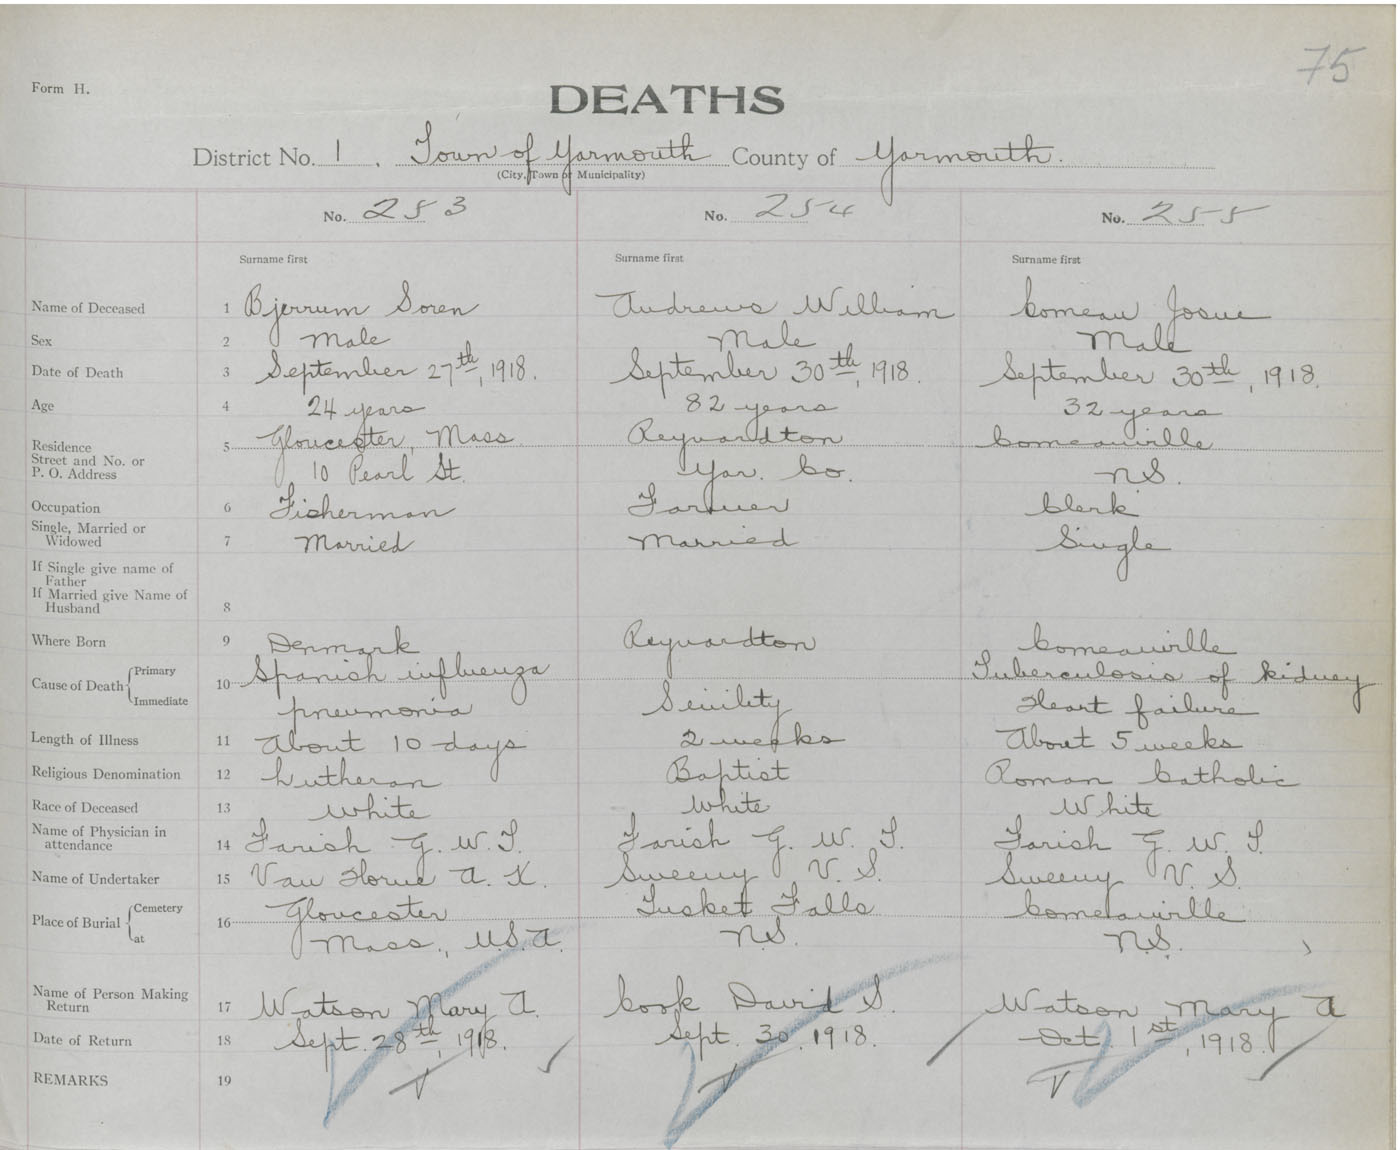 75
Form H.
DEATHS
District No. 1. Town of Yarmouth County of Yarmouth.
(City, Town or Municipality)
No. 253 No. 254 No. 255
Surname first Surname first Surname first
Name of Deceased 1 Bjerrum Soren Andrews William Comeau Josue
Sex 2 Male Male Male
Date of Death 3 September 27th, 1918. September 30th, 1918. September 30th, 1918.
Age 4 24 years 82 years 32 years
Residence 5 Gloucester, Mass Reynardton Comeauville
Street and No. or
P. O. Address 10 Pearl St. Yar. Co. N.S.
Occupation 6 Fisherman Farmer Clerk
Single, Married or
Widowed 7 Married Married Single
If Single give name of
Father
If Married give Name of
Husband 8
Where Born 9 Denmark Reynardton Comeauville
Cause of Death Primary 10 Spanish influenza Tuberculosis of kidney
Immediate pneumonia Senility Heart failure
Length of Illness 11 About 10 days 2 weeks About 5 weeks
Religious Denomination 12 Lutheran Baptist Roman Catholic
Race of Deceased 13 White White White
Name of Physician in
attendance 14 Farish G. W. T. Farish G. W. T. Farish G. W. T.
Name of Undertaker 15 Van Horne A. K. Sweeny V. S. Sweeny V. S.
Place of Burial Cemetery 16 Gloucester Tusket Falls Comeauville
at Mass., U.S.A. N.S. N.S.
Name of Person Making
Return 17 Watson Mary A. Cook David S. Watson Mary A
Date of Return 18 Sept. 28th, 1918. Sept. 30, 1918. Oct. 1st, 1918.
REMARKS 19